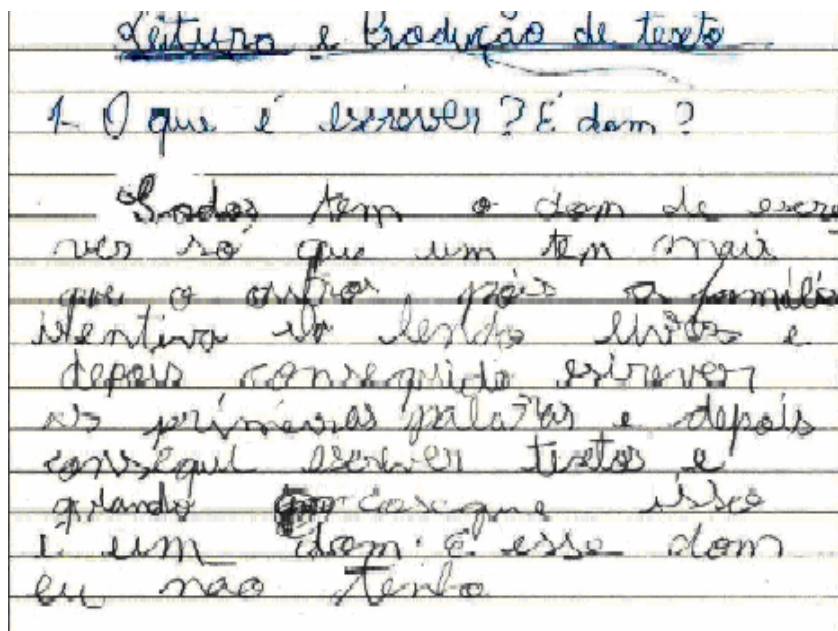 Leitura e Produção de texto
1- O que é escrever? É dom?
Todos tem o dom de escre
ver só que um tem mais
que o outros, pois a familia
isentiva ele lendo livros e
depois conseguido escrever
as primeiras palavras e depois
consegui escrever textos e
quando consegue isso
é um dom. E esse dom
eu não tenho